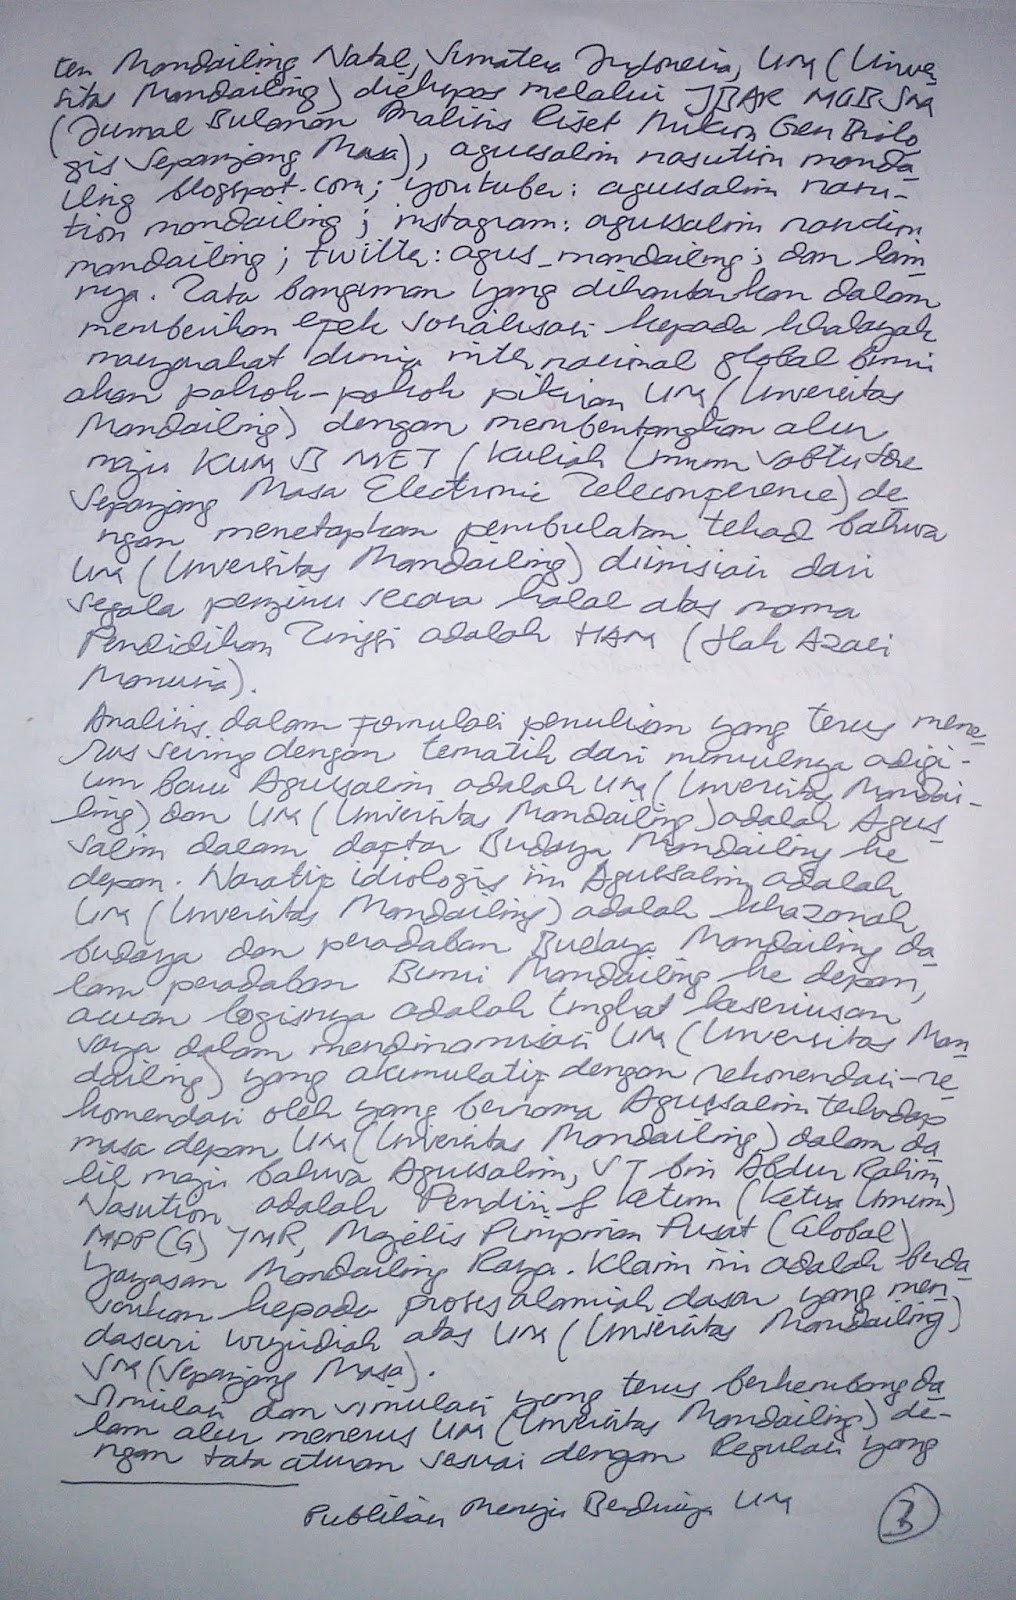 ten Mandailing Natal, Sumatera Indonesia, UM (Univer-
sitas Mandailing) diekspos melalui JBAR MGB SM
(Jurnal Bulanan Analisis Riset Mikro Gen Biolo-
gis Sepanjang Masa), agussalim nasution manda-
iling blogspot.com; youtuber: agussalim nasu-
tion mandailing; instagram: agussalim nasution
mandailing; twitter: agus_mandailing; dan lain
nya. Tata bangunan yang dihantarkan dalam
memberikan efek sosialisasi kepada khalayak
masyarakat dunia internasional global bumi
akan pokok-pokok pikiran UM (Universitas
Mandailing) dengan membentangkan alur
maju KUM SB MET (Kuliah Umum Sabtu Sore
Sepanjang Masa Electronic Teleconference) de
ngan menetapkan pembulatan tekad bahwa
UM (Universitas Mandailing) diinisiasi dari
segala penjuru secara halal atas nama
Pendidikan Tinggi adalah HAM (Hak Azasi
Manusia).
Analisis dalam formulasi penulisan yang terus mene-
rus seiring dengan tematik dari munculnya adigi-
um baru Agussalim adalah UM (Universitas Mandai-
ling) dan UM (Universitas Mandailing) adalah Agus
salim dalam daftar Budaya Mandailing ke
depan. Naratif idiologis ini Agussalim adalah
UM (Universitas Mandailing) adalah khazanah
budaya dan peradaban Budaya Mandailing da-
lam peradaban Bumi Mandailing ke depan,
awan logisnya adalah tingkat keseriusan
saya dalam mendinamisasi UM (Universitas Man
dailing) yang akumulatif dengan rekomendasi-re
komendasi oleh yang bernama Agussalim terhadap
masa depan UM (Universitas Mandailing) dalam da
lil maju bahwa Agussalim, ST bin Abdur Rahim
Nasution adalah Pendiri & Ketum (Ketua Umum)
MPP(G) YMR, Majelis Pimpinan Pusat (Global)
Yayasan Mandailing Raya. Klaim ini adalah berda
sarkan kepada proses alamiah dasar yang men
dasari wujudiah atas UM (Universitas Mandailing)
SM (Sepanjang Masa).
Simulasi dan simulasi yang terus berkembang da
lam alur menerus UM (Universitas Mandailing) de-
ngan tata aturan sesuai dengan Regulasi yang
Publikasi Menuju Berdirinya UM
3